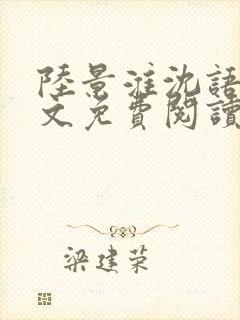 陸景淮沈語
文免費閱讀
梁建荣